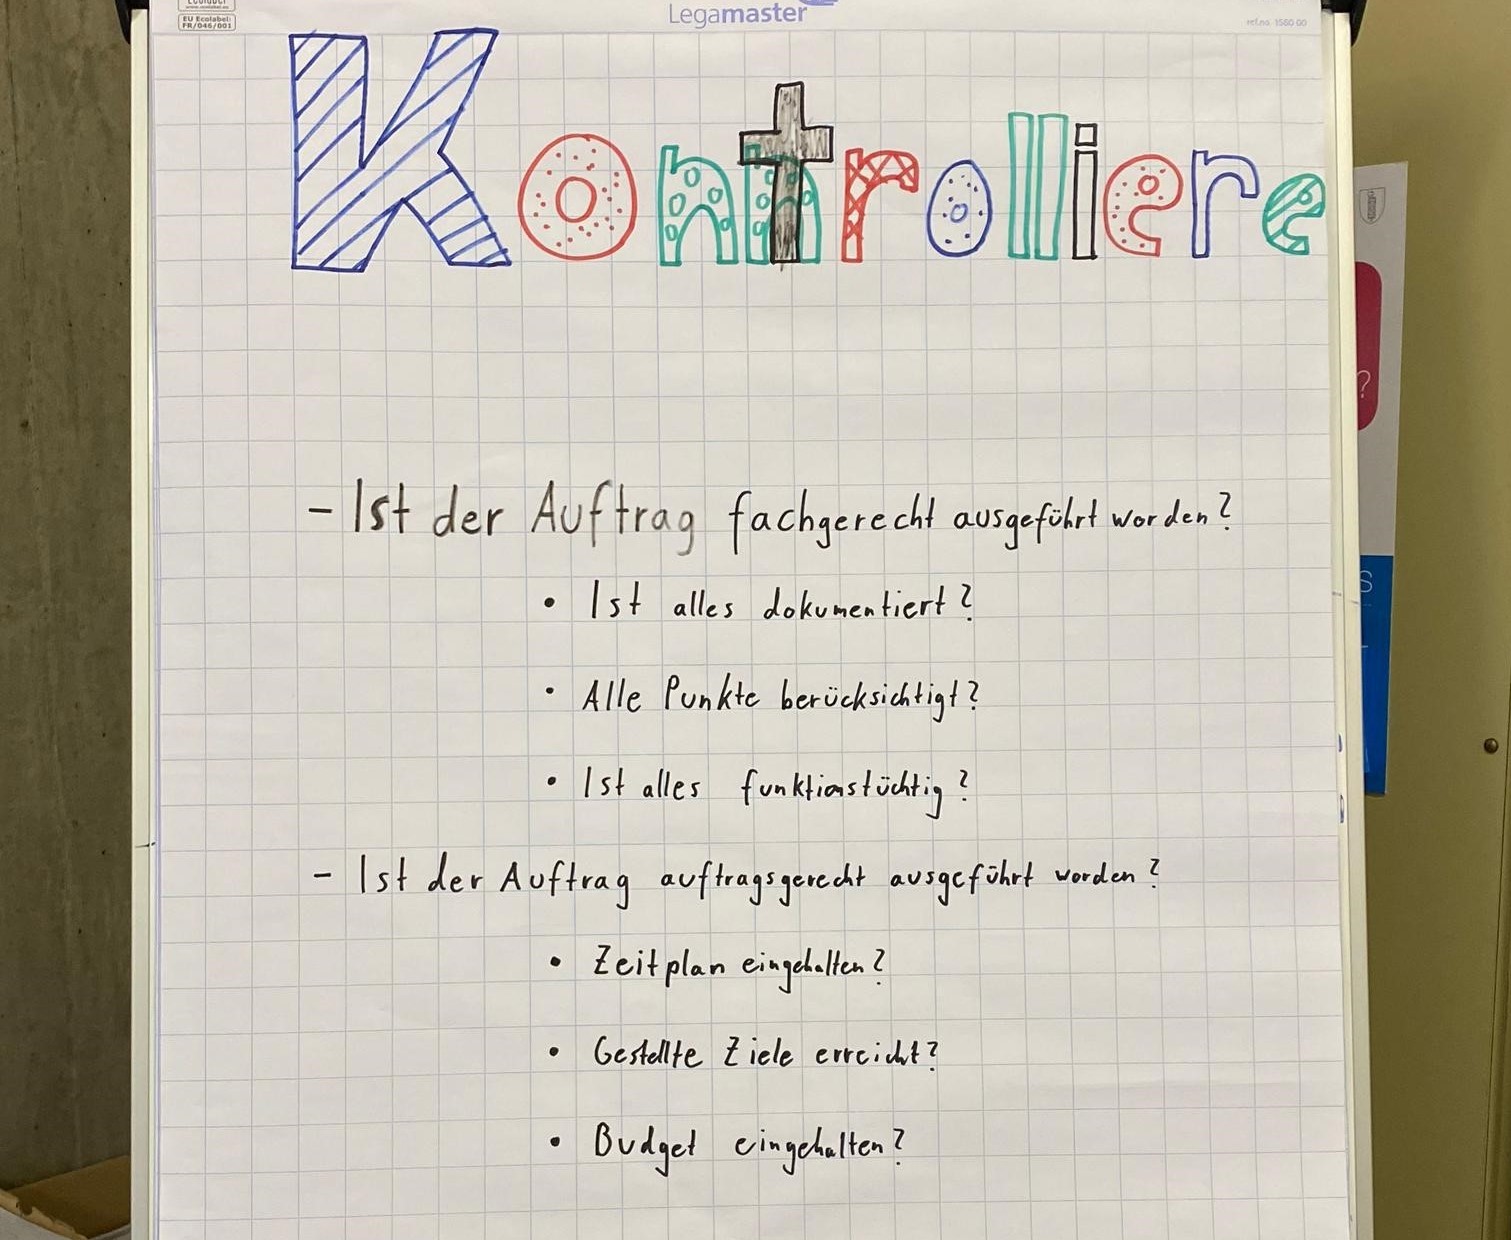 Ecolabel
www.ecolabel.eu
EU Ecolabel:
FR/046/001
Legamaster
ref.no. 1560 00
Kontroliere
- Ist der Auftrag fachgerecht ausgeführt worden?
• Ist alles dokumentiert?
• Alle Punkte berücksichtigt?
• Ist alles funktionstüchtig?
- Ist der Auftrag auftragsgerecht ausgeführt worden?
• Zeitplan eingehalten?
• Gestellte Ziele erreicht?
• Budget eingehalten?
?
S